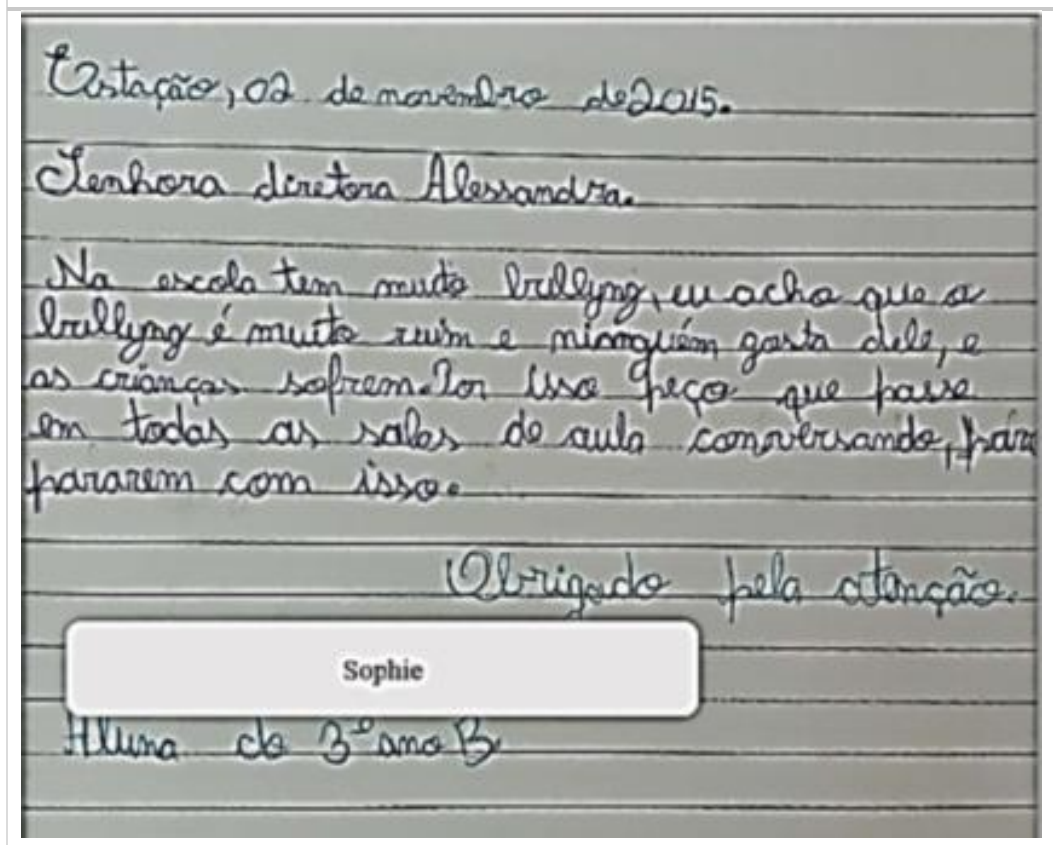 Estação, 02 de novembro de 2015.
Senhora diretora Alessandra.
Na escola tem muito bullyng, eu acho que o
bullyng é muito ruim e ninguém gosta dele, e
as crianças sofrem. Por isso peço que passe
em todas as salas de aula conversando, para
pararem com isso.
Obrigado pela atenção.
Sophie
Aluna do 3º ano B